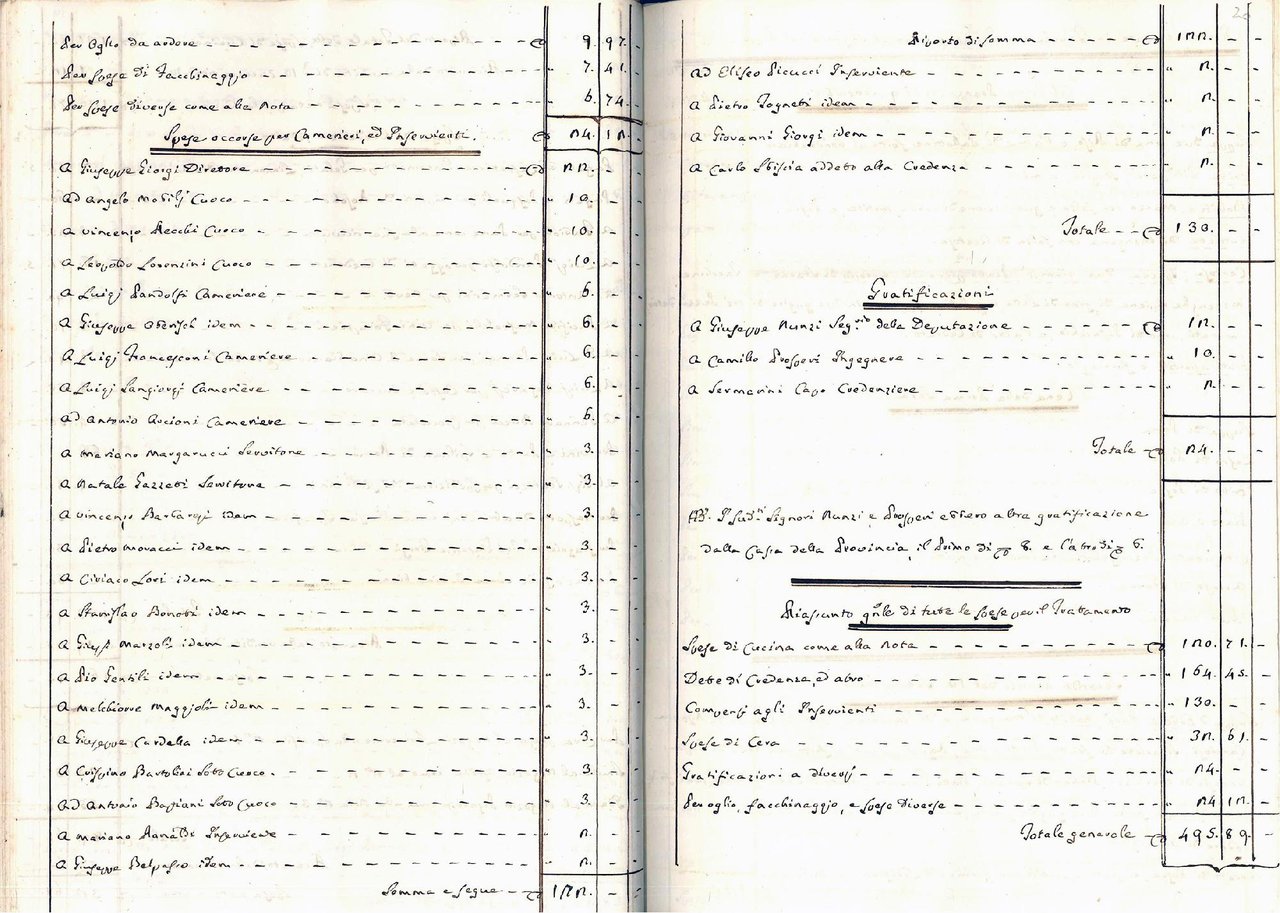 Per Oglio da ardere - 9. 97.
Per Spese di Facchinaggio - 7. 41.
Per Spese diverse come alla Nota - 6. 74
Spese occorse per Camerieri, ed Inservienti. 24. 12.
A Giuseppe Giorgi Direttore - 22. - -
Ad Angelo Mobilj Cuoco - " 10. - -
A Vincenzo Recchi Cuoco - " 10. - -
A Leopoldo Lorenzini Cuoco - " 10. - -
A Luigj Pandolfi Cameriere - " 6. - -
A Giuseppe idem - " 6. - -
A Luigj Francesconi Cameriere - " 6. - -
A Luigj Sangiorgj Cameriere - " 6. - -
Ad Antonio Cameriere - " 6. - -
A Mariano Margarucci Servitore - " 3. - -
A Natale Gazzetti Servitore - " 3. - -
A Vincenzo idem - " 3. - -
A Pietro Moracci idem - " 3. - -
A Ciriaco Lori idem - " 3. - -
A Stanislao Bonotti idem - " 3. - -
A Gius.e Marzoli idem - " 3. - -
A Pio Gentili idem - " 3. - -
A Melchiorre Maggioli idem - " 3. - -
A Giuseppe Cardella idem - " 3. - -
A Crispino Bartolini Sotto Cuoco - " 3. - -
Ad Antonio Bagiani Sotto Cuoco - " 3. - -
A Mariano Ranaldi Inserviente - " 2. - -
A Giuseppe Belpasso idem - " 2. - -
Somma e segue - 122. - -
Riporto di somma - 122. - -
Ad Eliseo Picucci Inserviente - " 2. - -
A Pietro Tognetti idem - " 2. - -
A Giovanni Giorgi idem - " 2. - -
A Carlo Sbiscia addetto alla Credenza - " 2. - -
Totale - 130. - -
Gratificazioni
A Giuseppe Nunzi Seg.rio della Deputazione - 12. - -
A Camillo Prosperi Ingegnere - " 10. - -
A Sermarini Capo Credenziere - " 2. - -
Totale - 24. - -
NB. I sud.ti Signori Nunzi e Prosperi ebbero altra gratificazione
dalla Cassa della Provincia, il Primo di 8. e l'altro di 6.
Riassunto gnle di tutte le Spese per il Trattamento
Spese di Cucina come alla Nota - 120. 71. -
Dette di Credenza, ed altro - " 164. 45. -
Compensi agli Inservienti - " 130. - -
Spese di Cera - " 32. 61. -
Gratificazioni a diversj - " 24. - -
Per oglio, facchinaggio, e Spese Diverse - " 24 12. -
Totale generale - 495. 89. -